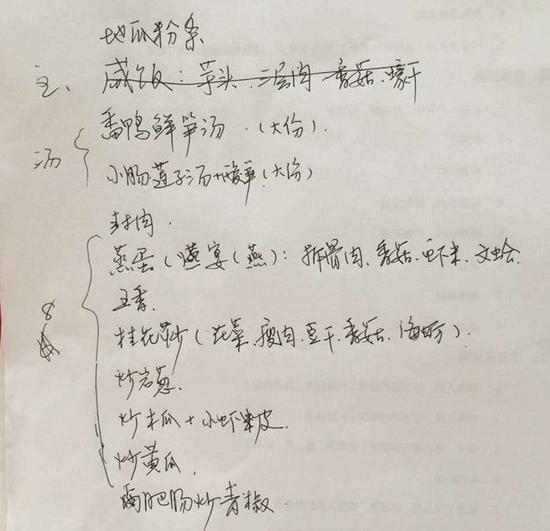 地瓜粉条
主、咸饭：芋头、三层肉 香菇、蠔干
汤
番鸭鲜笋汤．（大份）．
小肠莲子汤（大份）
封肉．
燕蛋（宴（燕）：拆骨肉、香菇、虾米、文蛤．
8
五香．
桂花炒（花菜、瘦肉、豆干、香菇、海蛎）．
炒岩葱．
炒木瓜＋小虾皮．
炒黄瓜．
卤肥肠炒青椒